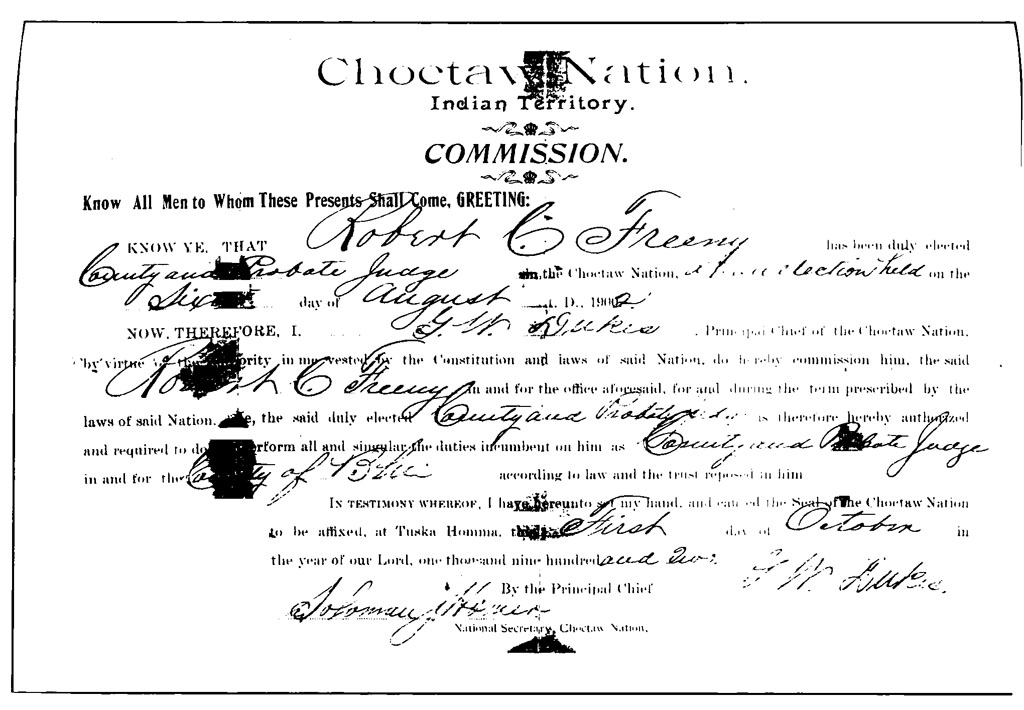 Choctaw Nation.
Indian Territory.
COMMISSION.
Know All Men to Whom These Presents Shall Come, GREETING:
KNOW YE, THAT Robert C Freeny has been duly elected
County and Probate Judge in the Choctaw Nation, at election held on the
day of August A. D., 1902
NOW, THEREFORE, I, G. W. Dukes, Principal Chief of the Choctaw Nation,
by virtue of the authority in me vested by the Constitution and laws of said Nation, do hereby commission him, the said
Robert C Freeny in and for the office aforesaid, for and during the term prescribed by the
laws of said Nation. the said duly elected County and Probate is therefore hereby authorized
and required to do perform all and singular the duties incumbent on him as County and Probate Judge
in and for the County of according to law and the trust reposed in him
IN TESTIMONY WHEREOF, I have hereunto set my hand, and caused the Seal of the Choctaw Nation
to be affixed, at Tuska Homma, this First day of October in
the year of our Lord, one thousand nine hundred and two.
G. W. Dukes.
By the Principal Chief
Solomon
National Secretary, Choctaw Nation.